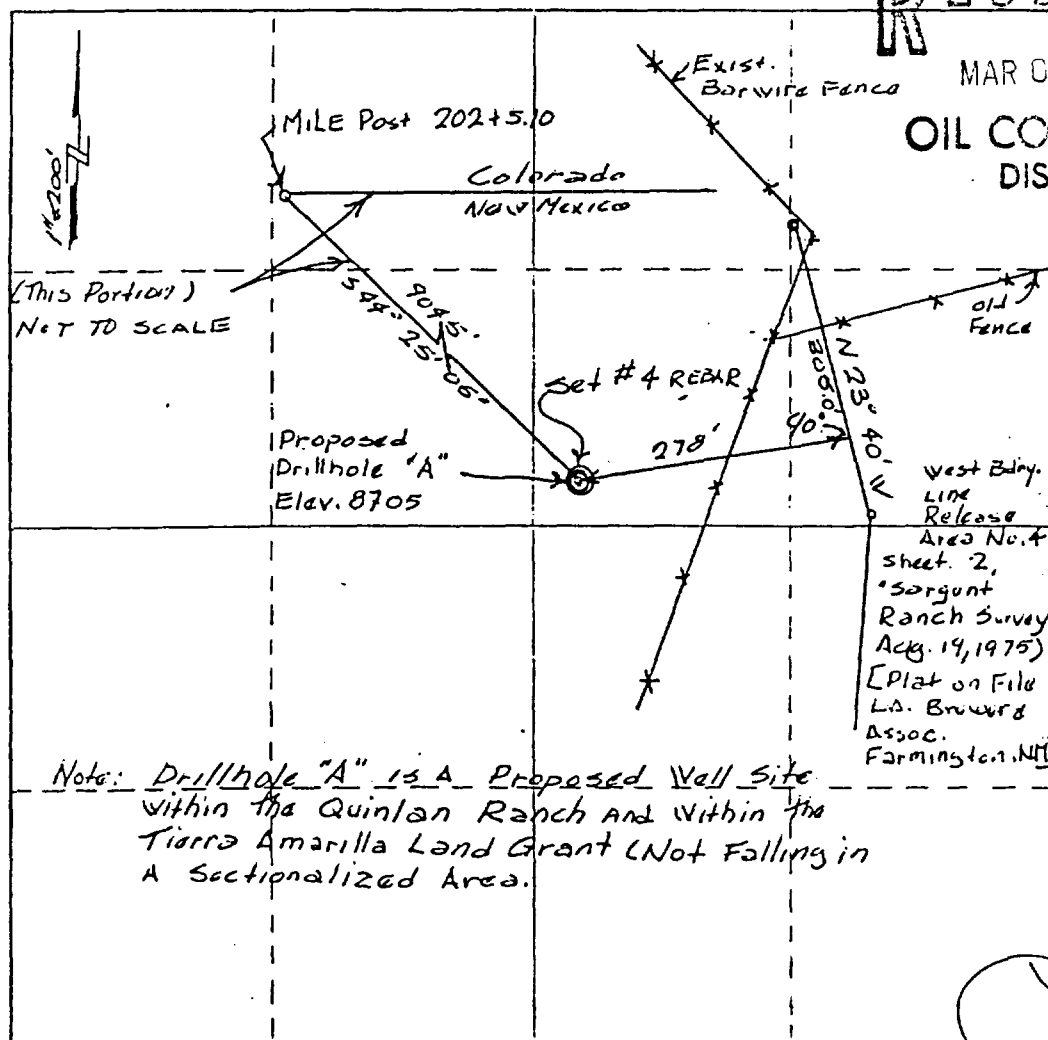 MAR 0
OIL CO
DIS
Exist.
Barwire Fence
MILE Post 202+5.10
Colorado
New Mexico
1"=200'
(This Portion)
NOT TO SCALE
9045.
S44° 25' 06"
Old
Fence
N 23° 40' W
Set #4 REBAR
278'
90°
Proposed
Drillhole "A"
Elev. 8705
West Bdry.
Line
Release
Area No. 4
Sheet. 2,
"Sargunt
Ranch Survey
Aug. 19, 1975)
[Plat on File
L.A. Bruward
Assoc.
Farmington, NM
Note: Drillhole "A" is A Proposed Well Site
Within the Quinlan Ranch And Within the
Tierra Amarilla Land Grant (Not Falling in
A Sectionalized Area.